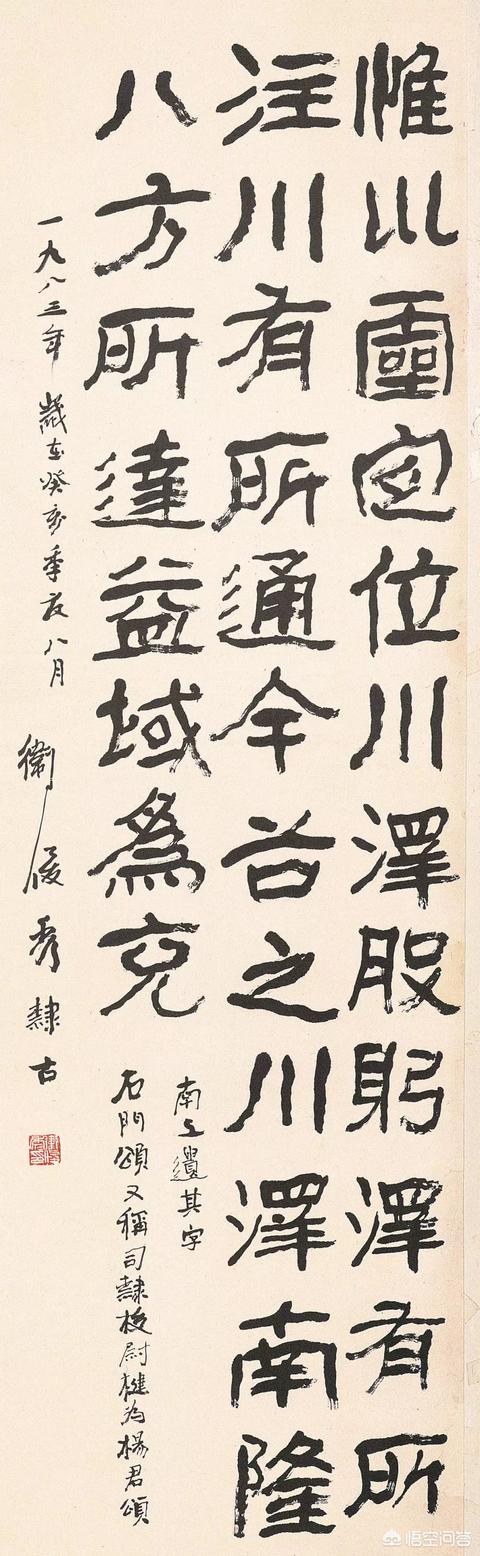 惟巛靈定位川澤股躬澤有所
注川有所通余谷之川澤南隆
八方所達益域為充
南上遺其字
石門頌又稱司隸校尉楗為楊君頌
一九八三年歲在癸亥季夏八月
衛俊秀隸古
悟空问答